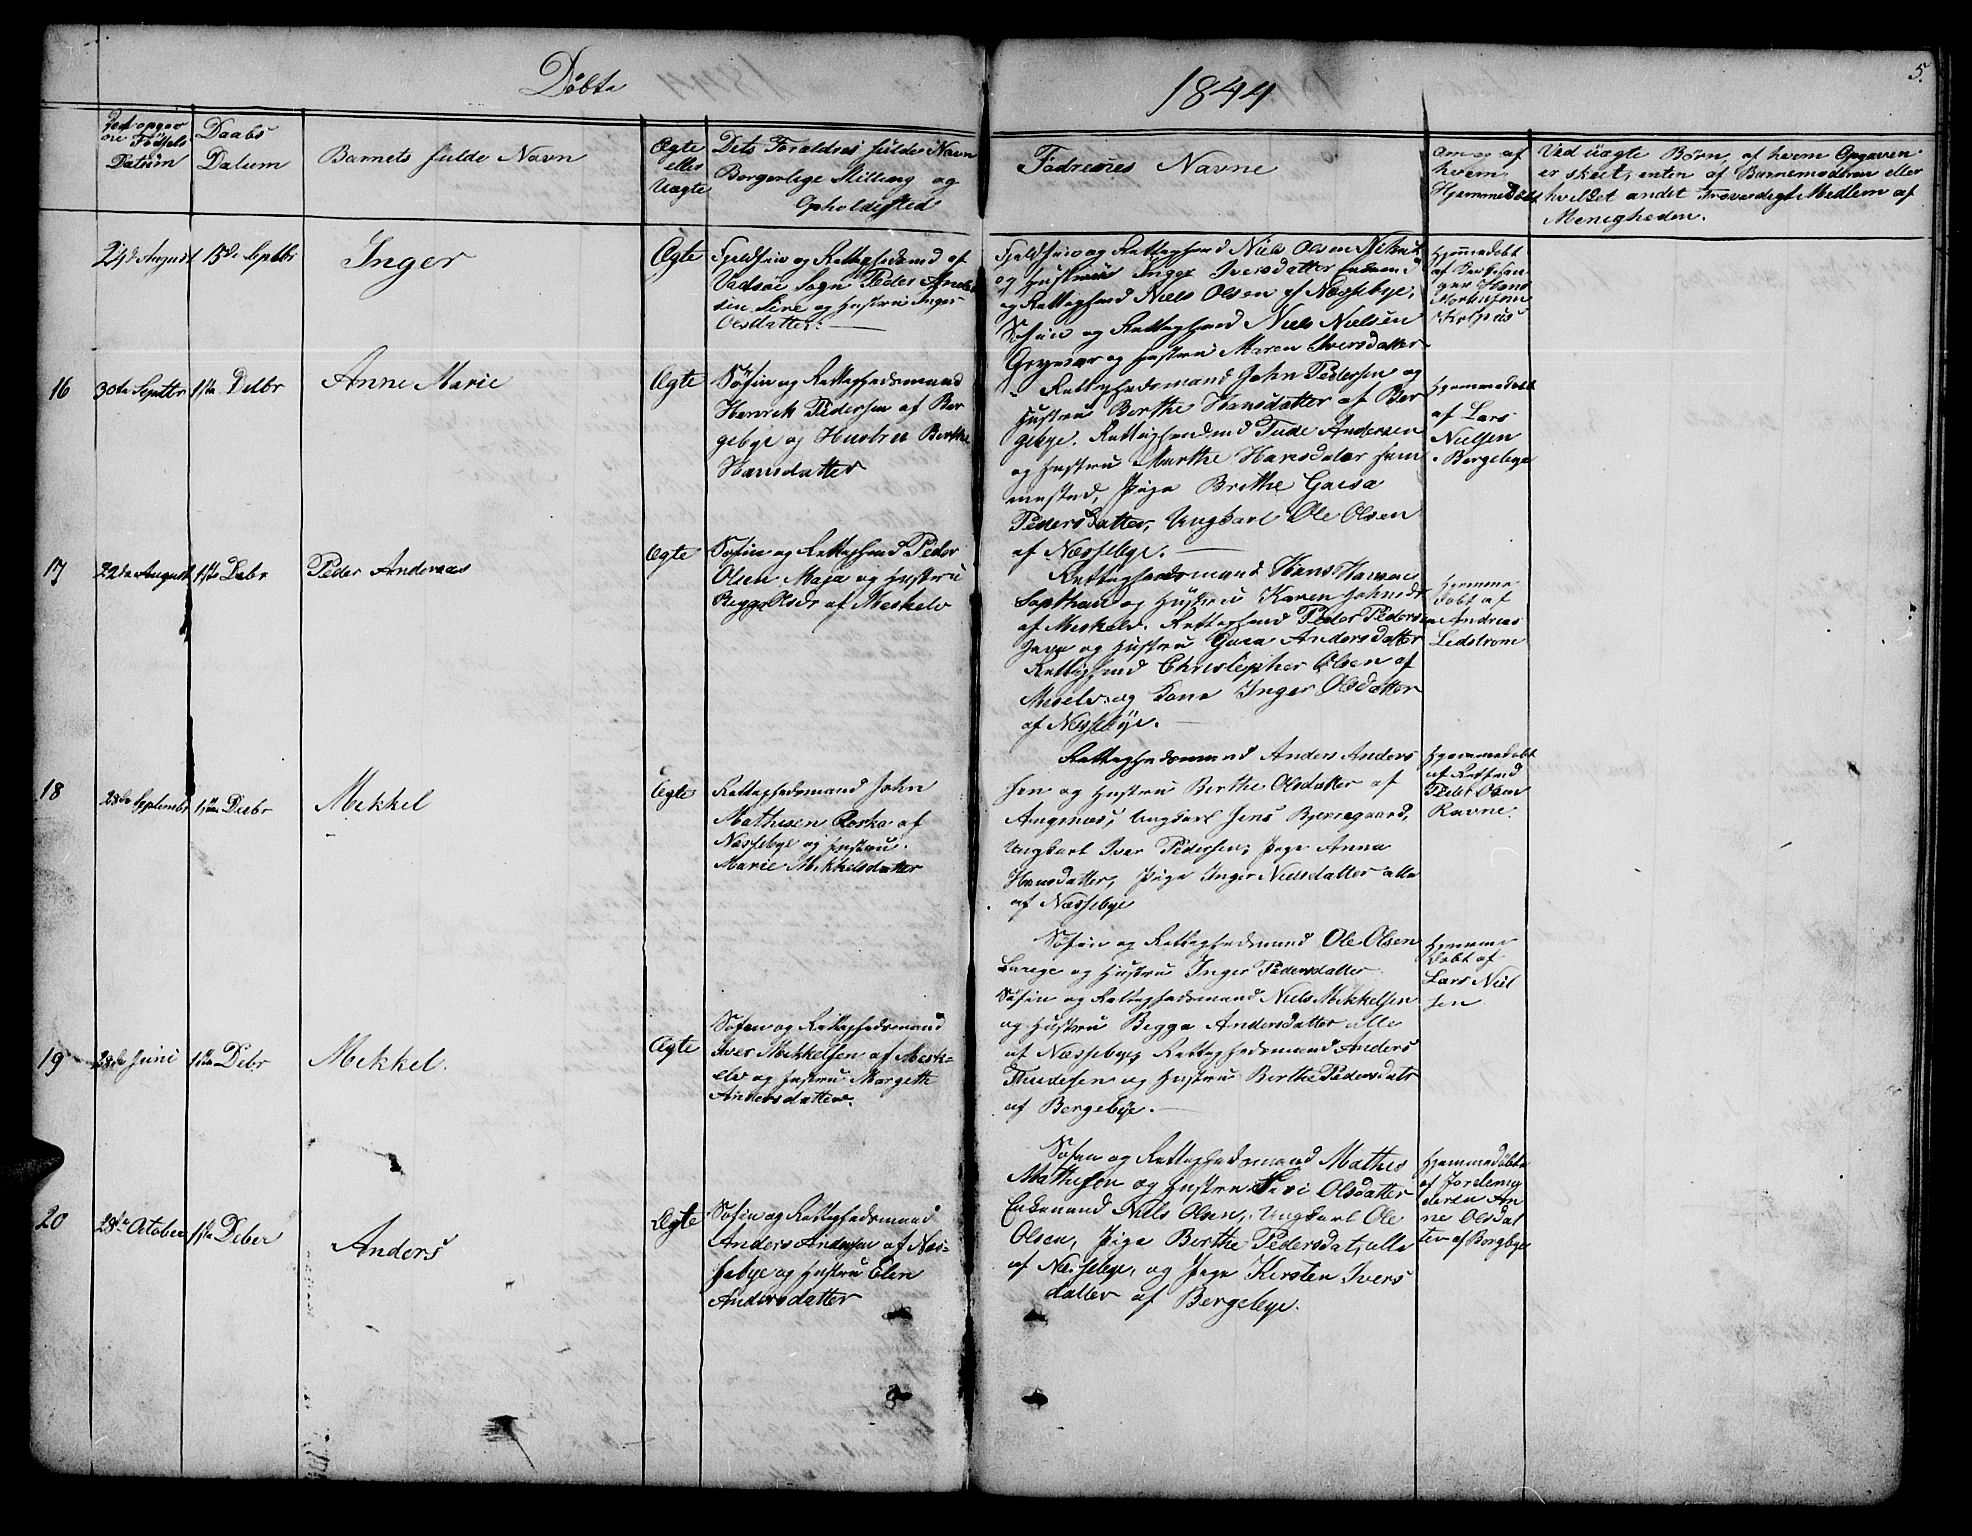 Döbte
1844
5.
Datum
Daabs
Datum
Barnets fulde Navn
Ægte
eller
Uægte
Dets Forældres fulde Navn
Borgerlige Stilling og
Opholdssted
Faddernes Navne
Om og af
hvem
Hjemmedöbt
Ved uægte Börn, af hvem Opgaven
er skeet, enten af Barnemoderen eller
hvilket andet Troværdigt Medlem af
Menigheden.
24de August
15de Septbr
Inger
Ægte
Fjeldfin og Rettighedsmd af
Vadsöe Sogn Peder Ander
sen og Hustru Inger
Olsdatter.
Fjeldfin og Rettighmd Niels Olsen
og Hustrue Inger Iversdatter Enkemd
og Rettighmd Niels Olsen af Næssebye,
Söfin og Rettighmd Niels Nielsen
og Hustru Maren Iversdatter
Hjemmedöbt
af
Hans
Mortensen
16
30de Septbr
1ste Debr
Anne Marie
Ægte
Söfin og Rettighedsmand
Henrik Pedersen af Ber
gebye og Hustru Berthe
Hansdatter
Rettighedsmand John Pedersen og
Hustru Berthe Hansdatter af Ber
gebye. Rettighedsmd Tude Andersen
og Hustru Marthe Hansdatter sam
mested, Pige Brithe Gaisa
Pedersdatter, Ungkarl Ole Olsen
af Næssebye.
Hjemmedöbt
af Lars
Nielsen
Bergebye
17
22de August
1ste Debr
Peder Andreas
Ægte
Söfin og Rettighmd Peder
Olsen Maja og Hustru
Begga Olsdr af Meskelv
Rettighedsmand Hans Hansen
og Hustru Karen Johnsdr
af Meskelv. Rettighmd Peder Peders
og Hustru Gaea Andersdatter
Rettighmd Christopher Olsen af
Meselv og Kone Inger Olsdatter
af Næssebye.
Hjemme
döbt af
Andreas
Ledstrom
18
28de Septembr
1ste Debr
Mekkel
Ægte
Rettighedsmand John
Mathisen Roska af
Næssebye og Hustru
Marie Mekkelsdatter
Rettighedsmand Anders Anders
sen og Hustru Berthe Olsdatter af
Angsnæs, Ungkarl Jens Bjerregaard,
Ungkarl Iver Pedersen, Pige Anna
Hansdatter, Pige Inger Nielsdatter alle
af Næssebye
Hjemmedöbt
af Retsmd
Peder Olsen
Ravne.
19
28de Juni
1ste Debr
Mekkel.
Ægte
Söfin og Rettighedsmand
Iver Mekkelsen af Mesk-
elv og Hustru Margethe
Andersdatter.
Söfin og Rettighedsmand Ole Olsen
og Hustru Inger Pedersdatter
Söfin og Rettighedsmand Niels Mekkelsen
og Hustru Begga Andersdatter alle
af Næssebye, Rettighedsmand Anders
Thudesen og Hustru Berthe Pedersdatr
af Bergebye.
Hjemme
döbt af
Lars Niel
sen
20
28de Octobr
1ste Deber
Anders
Ægte
Söfin og Rettighedsmand
Anders Andersen af Næs-
sebye og Hustru Elen
Andersdatter
Söfin og Rettighedsmand Mathis
Mathisen og Hustru Siri Olsdatter
Enkemand Niels Olsen, Ungkarl Ole
Olsen, Pige Berthe Pedersdat, alle
af Næssebye, og Pige Kirsten Ivers
datter af Bergebye.
Hjemmedöbt
af Jordemo
deren An
ne Olsdat
ter af Bergebye